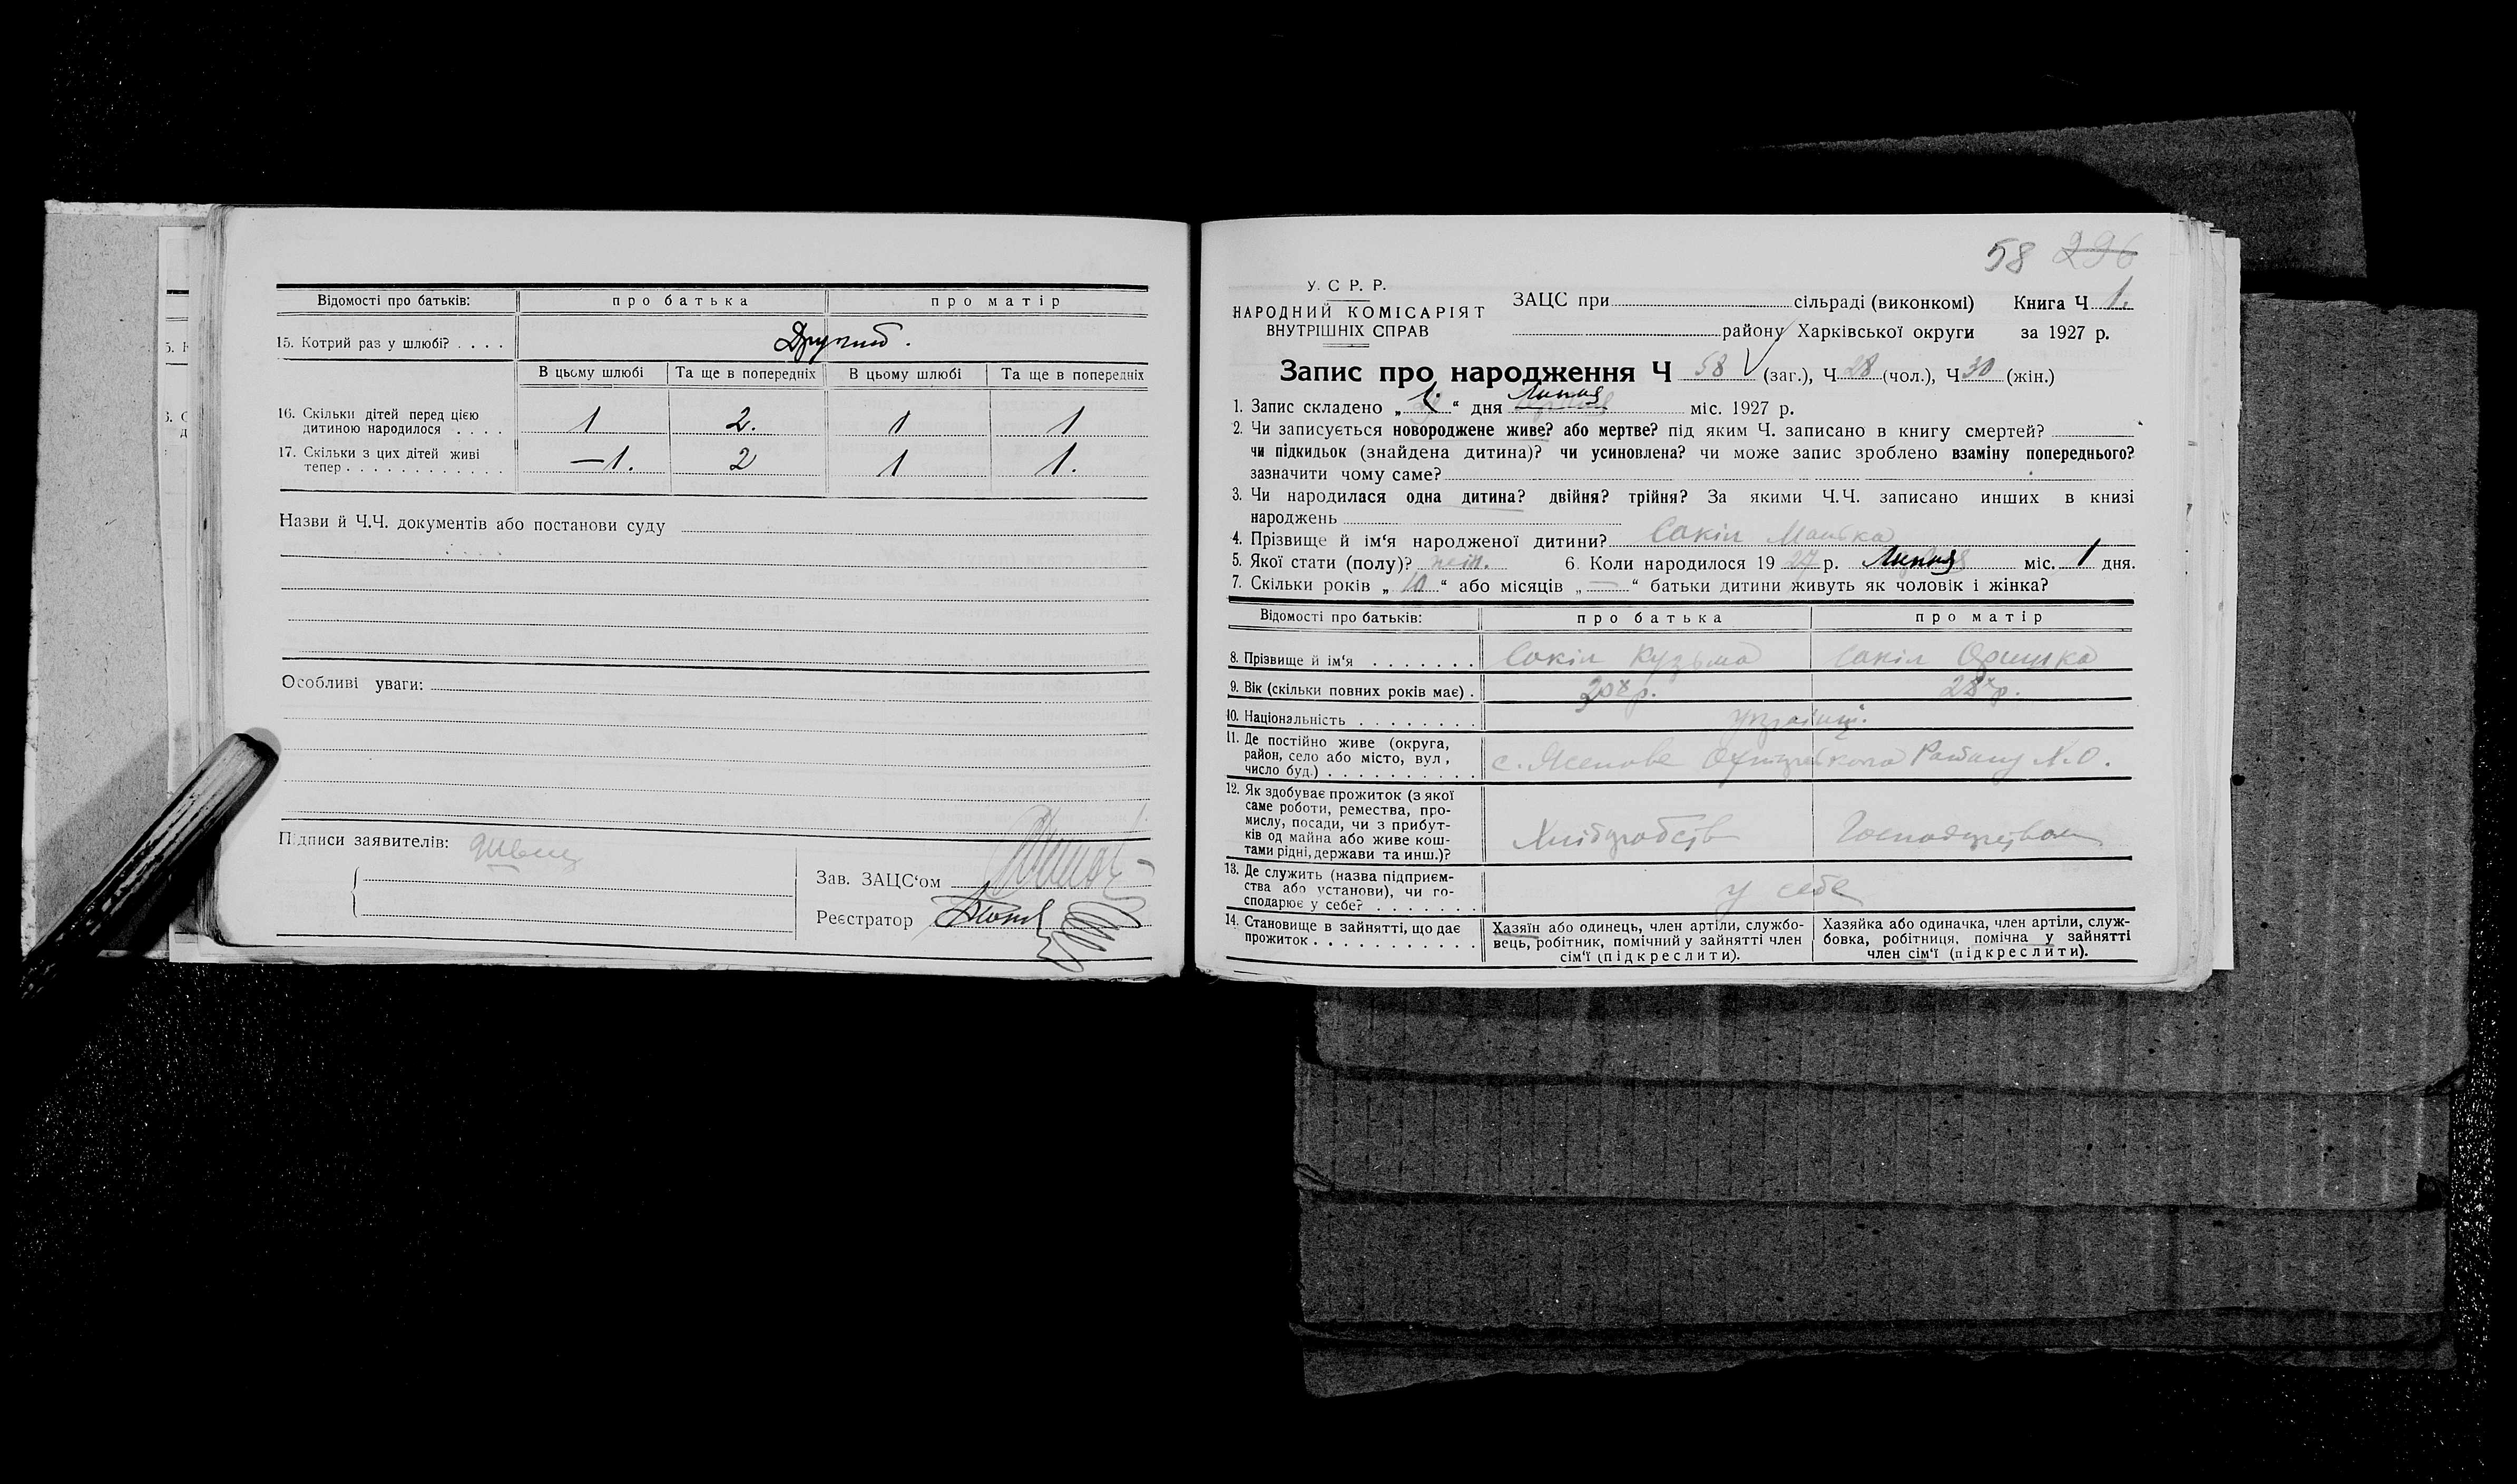 Відомості про батьків: про батька про матір
15. Котрий раз у шлюбі? . . . . Другий.
В цьому шлюбі Та ще в попередніх В цьому шлюбі Та ще в попередніх
16. Скільки дітей перед цією
дитиною народилося . . . . 1 2. 1 1
17. Скільки з цих дітей живі
тепер . . . . . . . . . . . . —1. 2 1 1.
Назви й Ч.Ч. документів або постанови суду
Особливі уваги:
Підписи заявителів:
Зав. ЗАЦС'ом
Реєстратор
58 296
У. С Р. Р.
НАРОДНИЙ КОМІСАРІЯТ
ВНУТРІШНІХ СПРАВ
ЗАЦС при сільраді (виконкомі) Книга Ч 1.
району Харківської округи за 1927 р.
Запис про народження Ч 58 (заг.), Ч 28 (чол.), Ч 30 (жін.)
1. Запис складено „ 1. “ дня Липня міс. 1927 р.
2. Чи записується новороджене живе? або мертве? під яким Ч. записано в книгу смертей?
чи підкидьок (знайдена дитина)? чи усиновлена? чи може запис зроблено взаміну попереднього?
зазначити чому саме?
3. Чи народилася одна дитина? двійня? трійня? За якими Ч.Ч. записано инших в книзі
народжень
4. Прізвище й ім'я народженої дитини? Сокіл
5. Якої стати (полу)? жін. 6. Коли народилося 19 27 р. Липня міс. 1 дня.
7. Скільки років „ 10 “ або місяців „ — “ батьки дитини живуть як чоловік і жінка?
Відомості про батьків: про батька про матір
8. Прізвище й ім'я . . . . . . . Сокіл Кузьма Сокіл Оришка
9. Вік (скільки повних років має) . 28 р.
10. Національність . . . . . . . . україн.
11. Де постійно живе (округа,
район, село або місто, вул.,
число буд.) . . . . . . . . . . . с. Ясенове Охтирського Району Х.О.
12. Як здобуває прожиток (з якої
саме роботи, ремества, про-
мислу, посади, чи з прибут-
ків од майна або живе кош-
тами рідні, держави та инш.)? Хліборобств Господарством
13. Де служить (назва підприєм-
ства або установи), чи го-
сподарює у себе? . . . . . . . у себе
14. Становище в зайнятті, що дає
прожиток . . . . . . . . . . .
Хазяїн або одинець, член артіли, службо-
вець, робітник, помічний у зайнятті член
сім'ї (підкреслити).
Хазяйка або одиначка, член артіли, служ-
бовка, робітниця, помічна у зайнятті
член сім'ї (підкреслити).